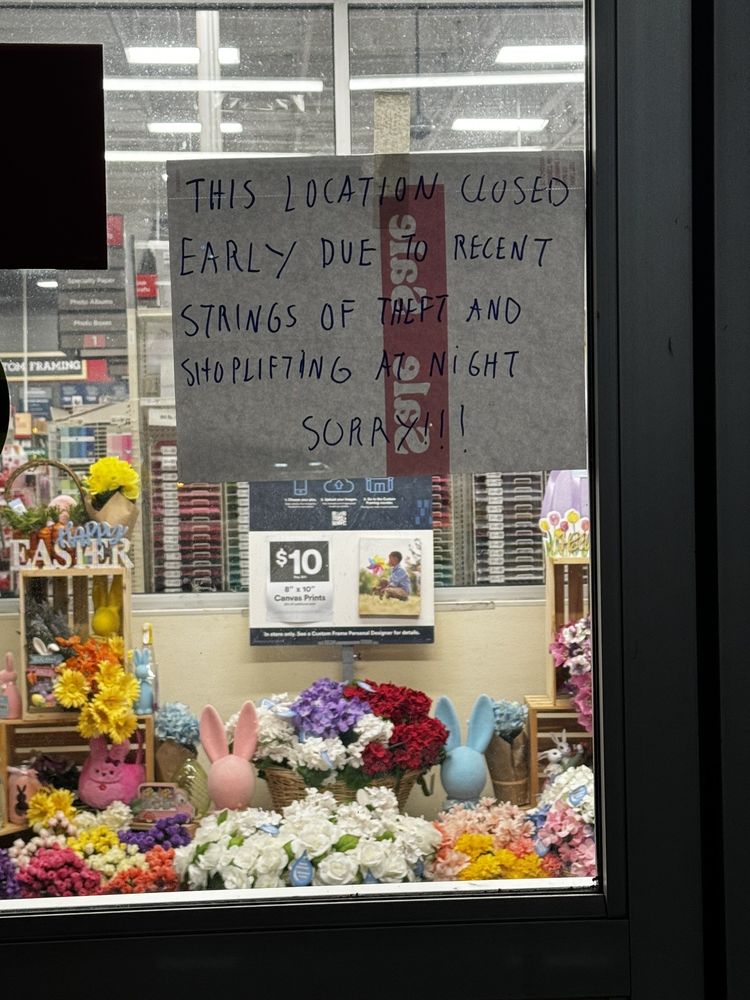 THIS LOCATION CLOSED
EARLY DUE TO RECENT
STRINGS OF THEFT AND
SHOPLIFTING AT NIGHT
SORRY!!!
Sale
Specialty Paper
Photo Albums
Photo Boxes
TOM FRAMING
HAPPY
EASTER
$10
8" x 10"
Canvas Prints
In store only. See a Custom Frame Personal Designer for details.